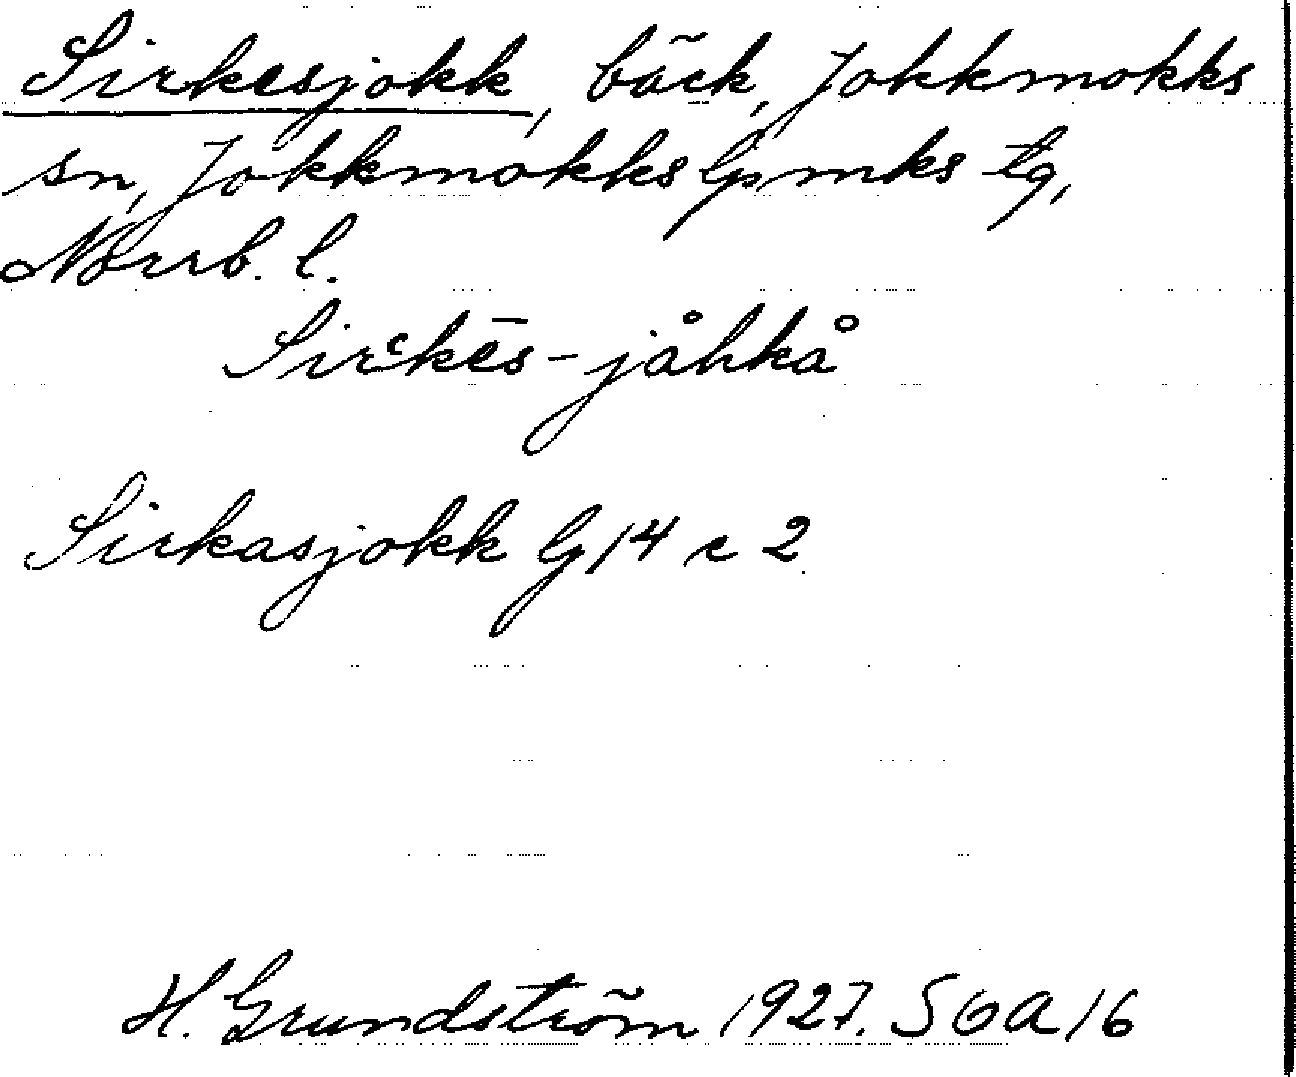 Sirkesjokk, bäck, Jokkmokks
sn, Jokkmokks lpmks tg,
Norrb. l.
Sirʿkēs-jåhkå
Sirkasjokk G 14 c 2
H. Grundström 1927. SOA 16